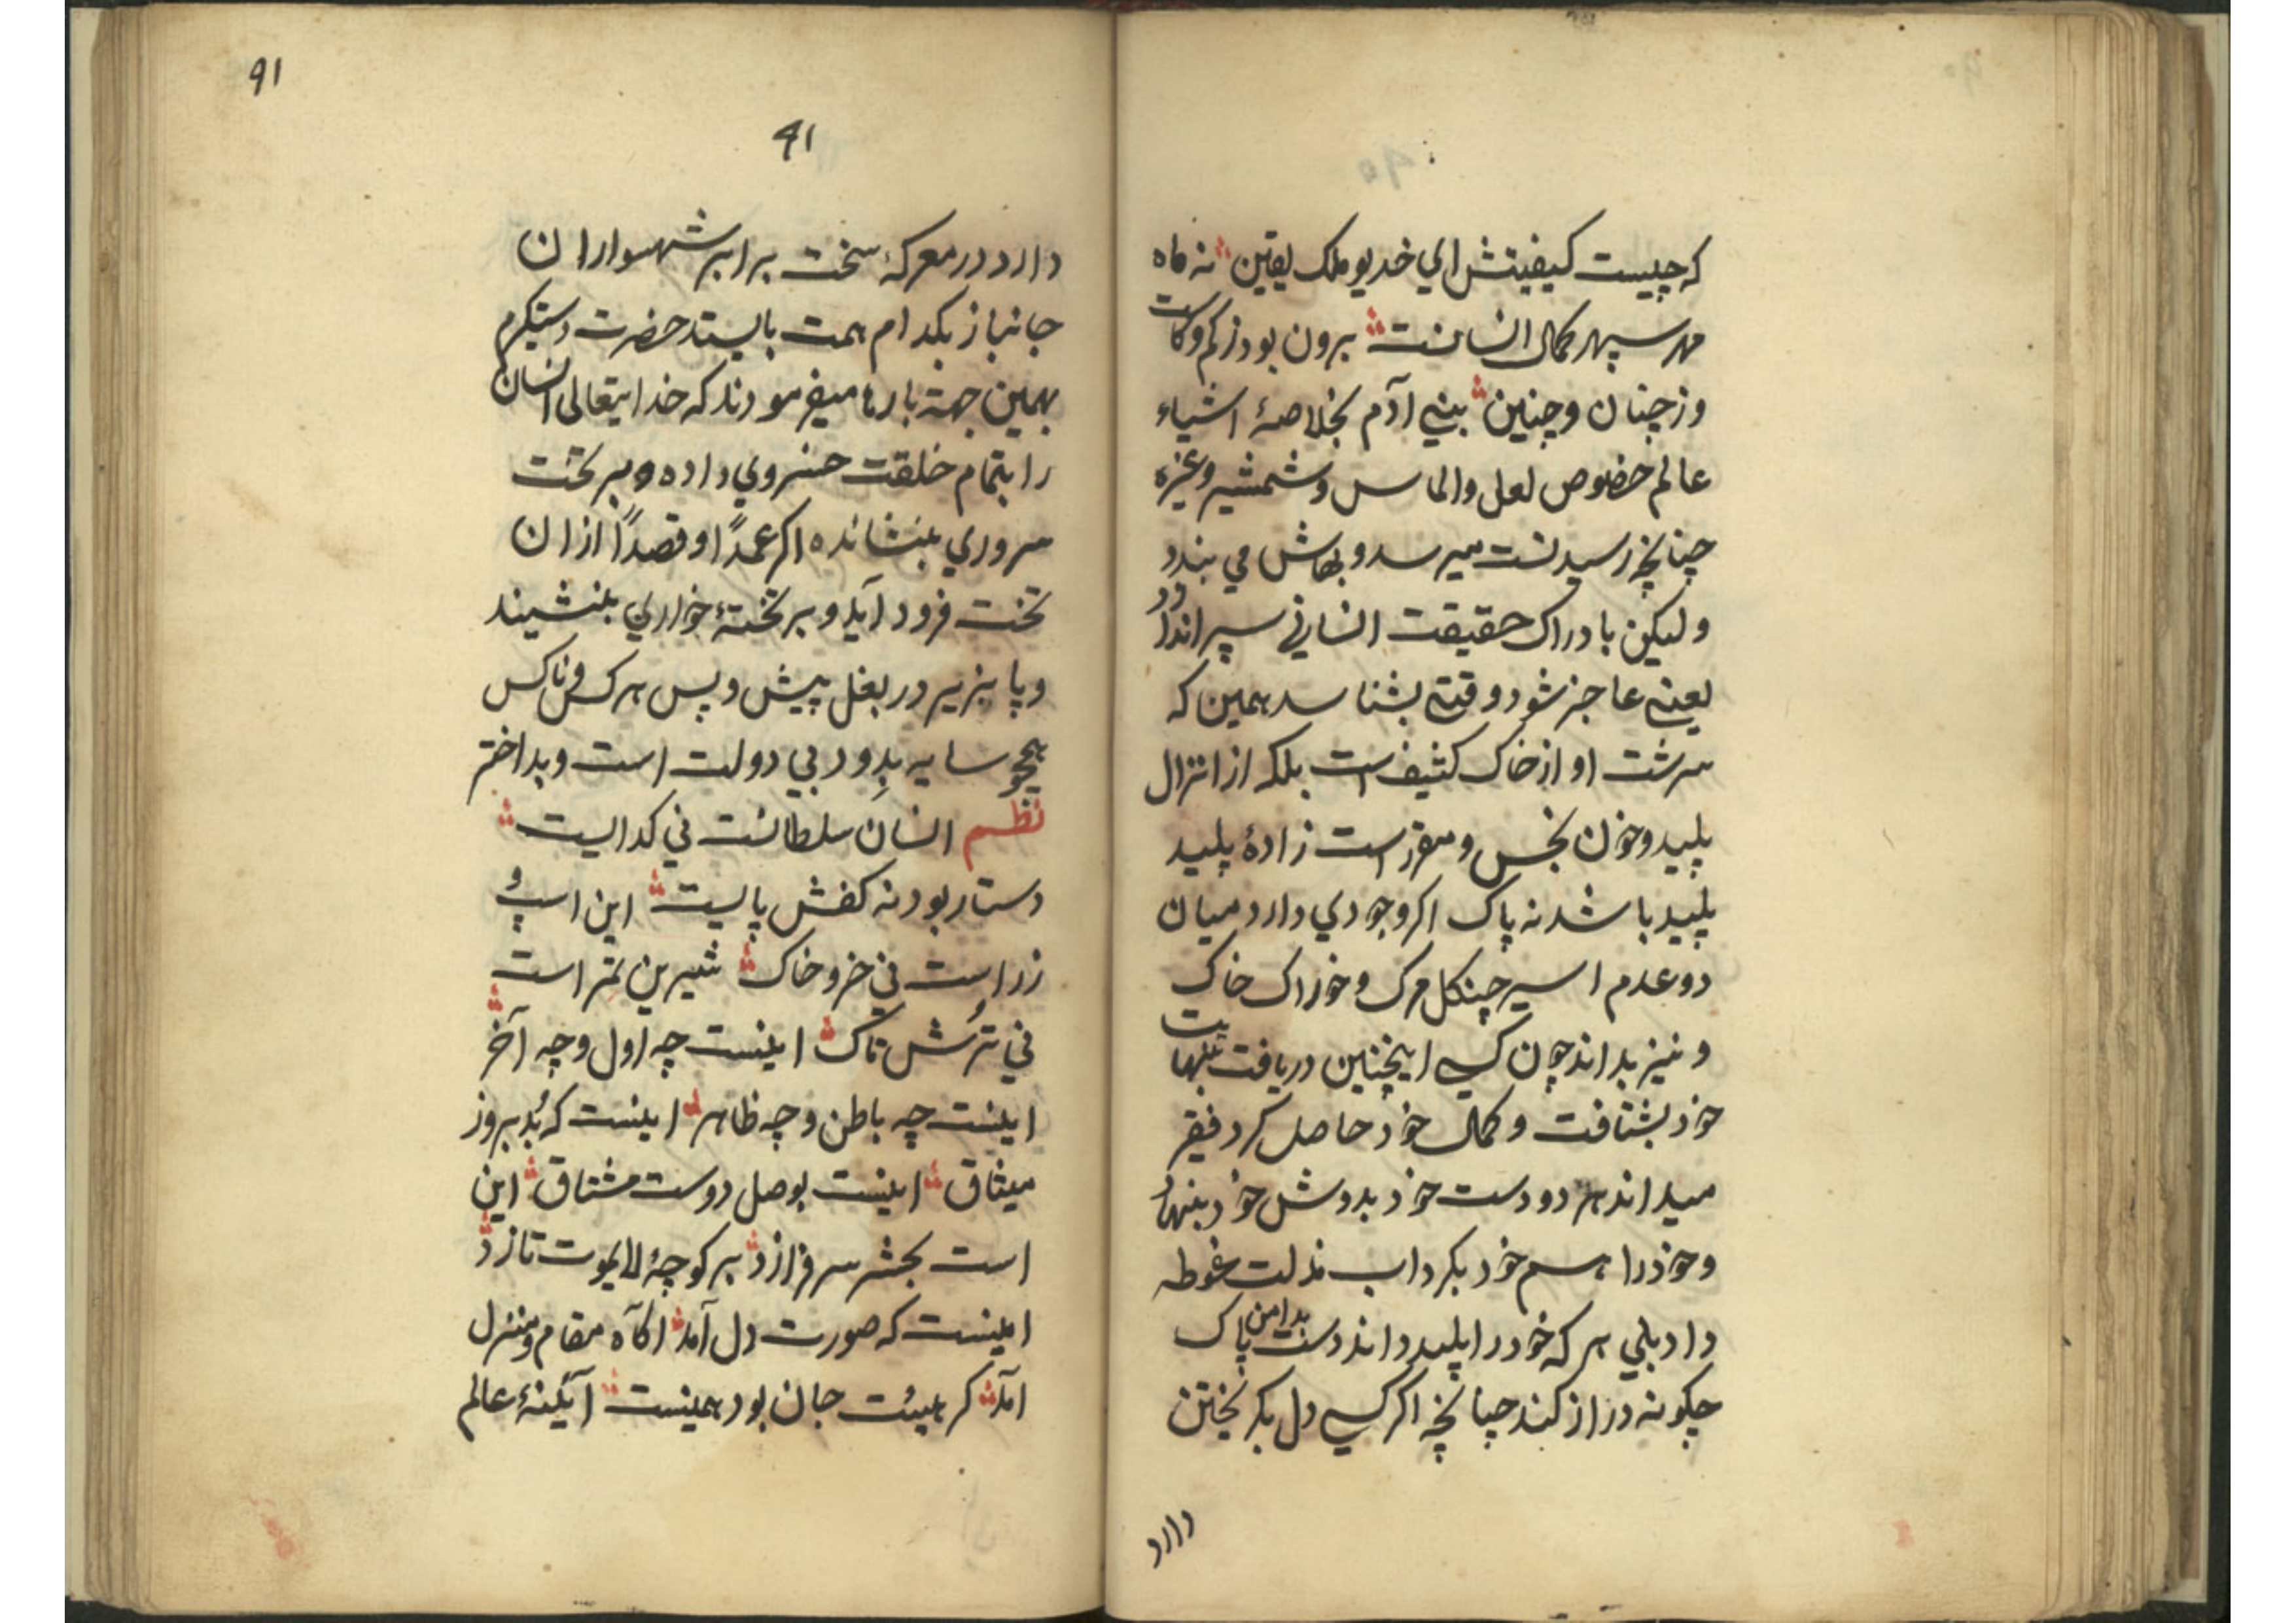 که چیست کیفیتش ای خدیو ملک یقین نه ماه
مهر سپهر کمال انسانست برون بود ز کم و کاست
وز چنان و چنین بنی آدم بخلاصهٔ اشیاء
عالم خصوص لعل و الماس و شمشیر و غیره
چنانچه رسیدنست میرسد و بهاش می بندد
و لیکن بادراک حقیقت انسانی سپر اندازد
یعنی عاجز شود وقتی بشناسد همین که
سرشت او از خاک کثیف است بلکه از انزال
پلید و خون نجس و مقرر است زادهٔ پلید
پلید باشد نه پاک اگر وجودی دارد میان
دو عدم اسیر چنگل مرگ و خوراک خاک
و نیز بداند چون کسی اینچنین دریافت
خود بشتافت و کمال خود حاصل کرد فقیر
میداند هر دو دست خود بدوش خود
و خود را هم خود بگرداب مذلت غوطه
داد بلی هر که خود را پلید داند دست بدامن پاک
چگونه دراز کند چنانچه اگر کسی دل بگریختن
دارد
91
91
دارد در معرکهٔ سخت برابر شهسواران
جانباز بکدام همت بایستد حضرت دستگیرم
بهمین جهة بارها میفرمودند که خدایتعالی انسان
را بتمام خلقت خسروی داده و بر تخت
سروری بنشانده اگر عمداً او قصداً از ان
تخت فرود آید و بر تختهٔ خواری بنشیند
و پا بزیر در بغل پیش و پس هر کس و ناکس
همچو سایه بدود بی دولت است و بداختر
نظم انسان سلطانست نی گداییست
دستار بود نه کفش پاییست این اسپ
زر است نی خر و خاک شیرین تمر است
نی ترش تاک اینست چه اول و چه آخر
اینست چه باطن و چه ظاهر اینست که بُد بروز
میثاق اینست بوصل دوست مشتاق این
است بحشر سرفرازد بر کوچهٔ لایموت تازد
اینست که صورت دل آمد آگاه مقام و منزل
آمد گر هیئت جان بود همینست آئینهٔ عالم